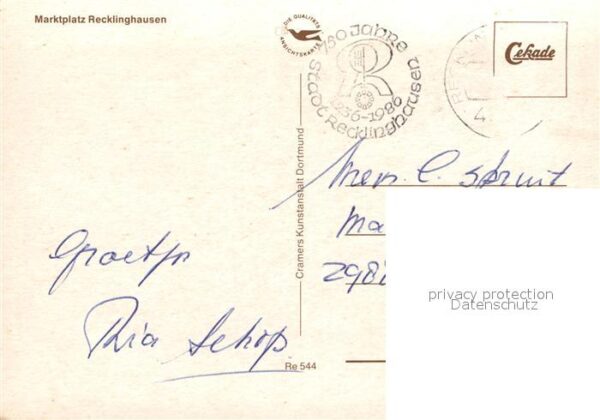 Marktplatz Recklinghausen
DIE QUALITÄTS
ANSICHTSKARTE
750 Jahre
Stadt Recklinghausen
1236-1986
Cekade
Cramers Kunstanstalt Dortmund
Mevr. C. Spruit
Ma
298
Groetjs
Ria Schop
privacy protection
Datenschutz
Re 544